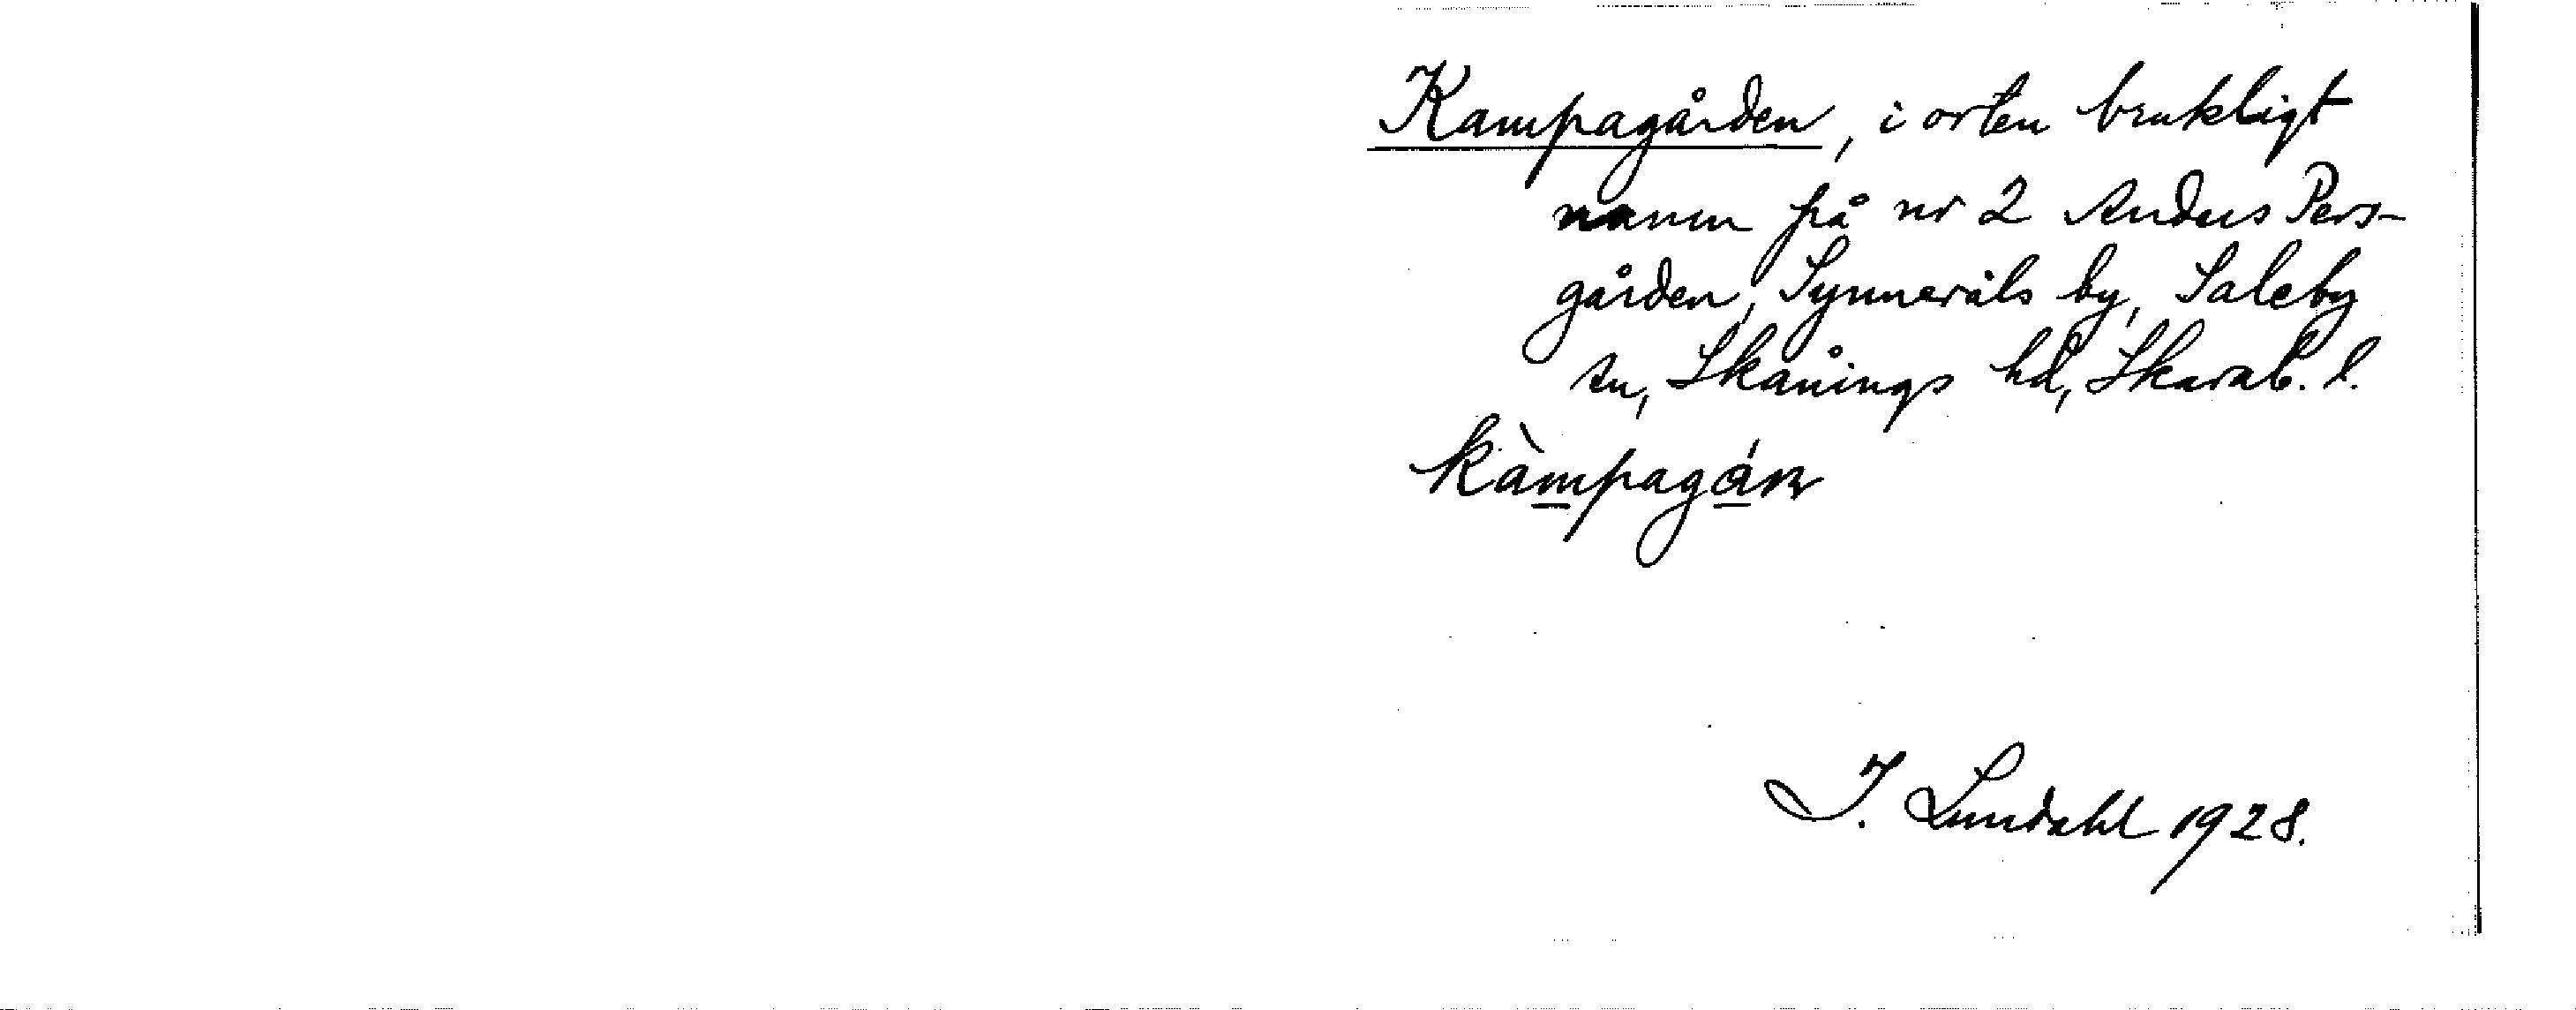 Kampagården, i orten brukligt
namn på nr 2 Anders Pers-
gården, Synneråls by, Saleby
sn, Skånings hd, Skarab. l.
kàmpagán
I. Lundahl 1928.